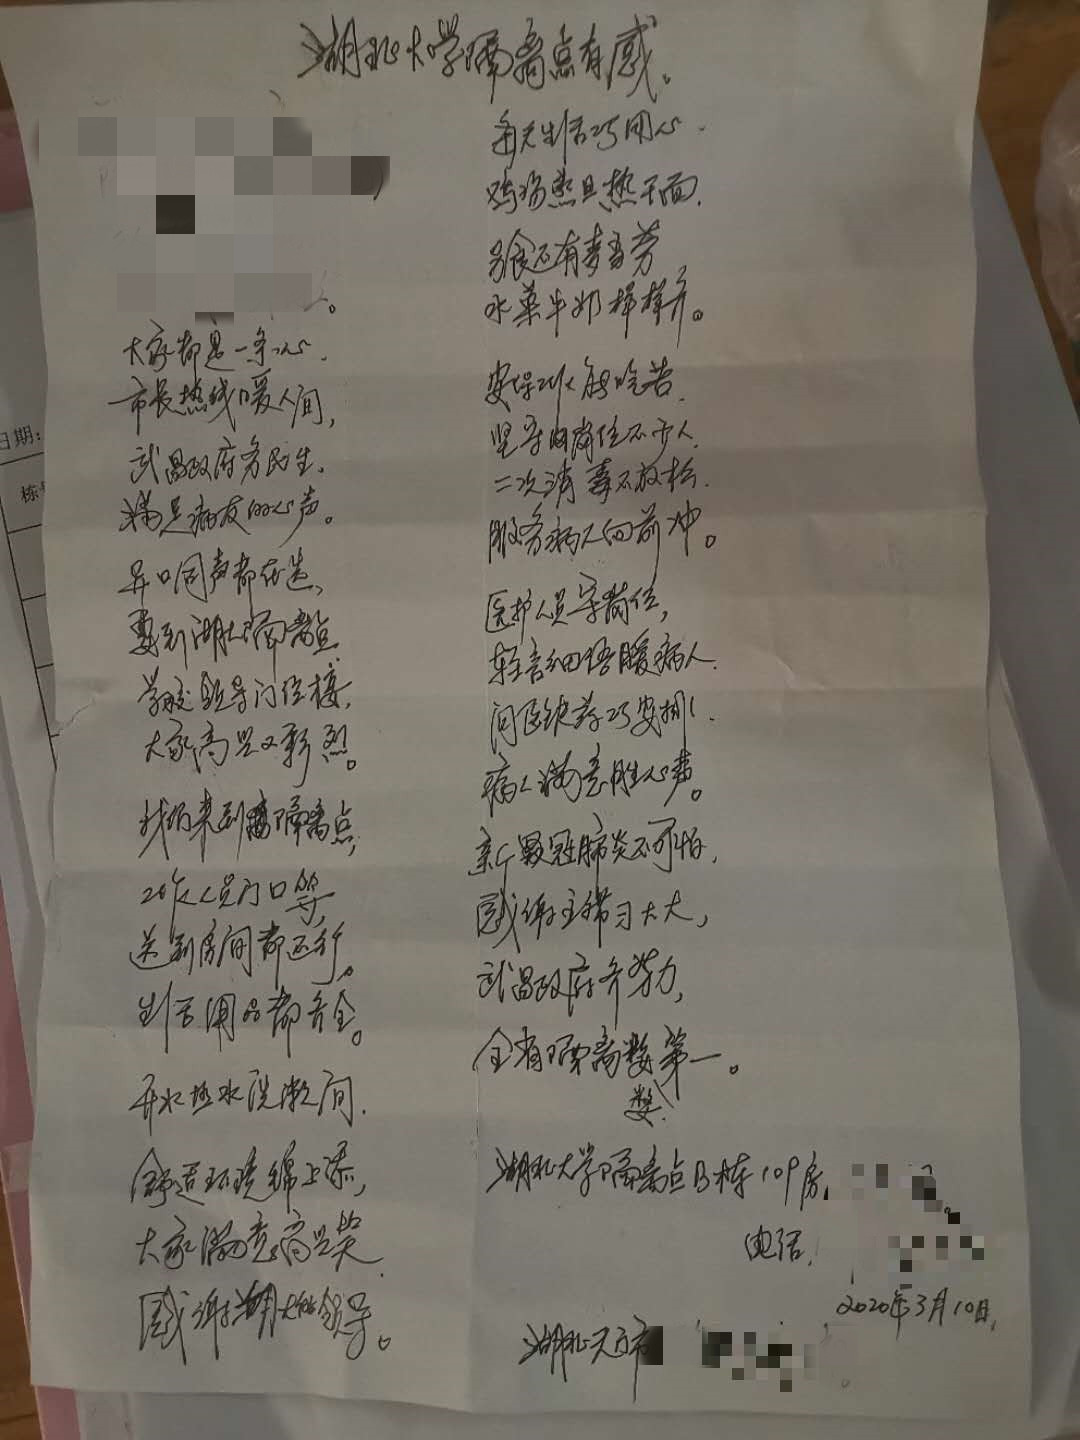 湖北大学隔离点有感。
大家都是一条心.
市长热线暖人间,
武昌政府务民生.
满足病友的心声。
异口同声都在选,
要到湖北大隔离点.
学校领导门位接,
大家高兴又彩烈。
我们来到隔离点,
工作人员门口等,
送到房间都还行,
生活用品都齐全。
开水热水洗漱间.
舒适环境锦上添,
大家满意高兴笑.
感谢湖大的领导。
每天生活巧用心.
鸡汤煮旦热干面.
另食还有麦香芳
水菜牛奶样样齐。
安保人能吃苦.
坚守岗位不少人.
二次消毒不放松.
服务病人向前冲。
医护人员守岗位,
轻言细语暖病人.
问医缺药巧安排.
病人满意胜心声。
新冠肺炎不可怕,
感谢主席习大大,
武昌政府齐努力,
全省隔离数第一。
数
湖北大学隔离点B栋109房,
电话.
2020年3月10日.
湖北天门市
日期:
栋